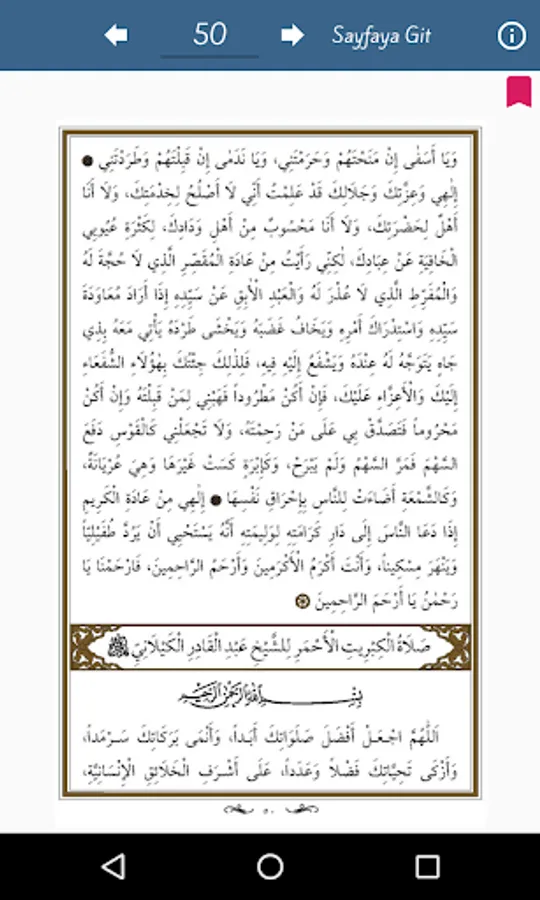 50
Sayfaya Git
وَيَا أَسَفٰى إِنْ مَنَحْتَهُمْ وَحَرَمْتَنِي، وَيَا نَدَمٰى إِنْ قَبِلْتَهُمْ وَطَرَدْتَنِي ●
إِلٰهِي وَعِزَّتِكَ وَجَلَالِكَ قَدْ عَلِمْتُ أَنِّي لَا أَصْلُحُ لِخِدْمَتِكَ، وَلَا أَنَا
أَهْلٌ لِحَضْرَتِكَ، وَلَا أَنَا مَحْسُوبٌ مِنْ أَهْلِ وَدَادِكَ، لِكَثْرَةِ عُيُوبِي
الْخَافِيَةِ عَنْ عِبَادِكَ، لٰكِنِّي رَأَيْتُ مِنْ عَادَةِ الْمُقَصِّرِ الَّذِي لَا حُجَّةَ لَهُ
وَالْمُفَرِّطِ الَّذِي لَا عُذْرَ لَهُ وَالْعَبْدِ الْأَبِقِ عَنْ سَيِّدِهِ إِذَا أَرَادَ مُعَاوَدَةَ
سَيِّدِهِ وَاسْتِدْرَاكَ أَمْرِهِ وَيَخَافُ غَضَبَهُ وَيَخْشَى طَرْدَهُ يَأْتِي مَعَهُ بِذِي
جَاهٍ يَتَوَجَّهُ لَهُ عِنْدَهُ وَيَشْفَعُ إِلَيْهِ فِيهِ، فَلِذٰلِكَ جِئْتُكَ بِهٰؤُلَاءِ الشُّفَعَاءِ
إِلَيْكَ وَالْأَعِزَّاءِ عَلَيْكَ، فَإِنْ أَكُنْ مَطْرُوداً فَهَبْنِي لِمَنْ قَبِلْتَهُ وَإِنْ أَكُنْ
مَحْرُوماً فَتَصَدَّقْ بِي عَلَى مَنْ رَحِمْتَهُ، وَلَا تَجْعَلْنِي كَالْقَوْسِ دَفَعَ
السَّهْمَ فَمَرَّ السَّهْمُ وَلَمْ يَبْرَحْ، وَكَإِبْرَةٍ كَسَتْ غَيْرَهَا وَهِيَ عُرْيَانَةٌ،
وَكَالشَّمْعَةِ أَضَاءَتْ لِلنَّاسِ بِإِحْرَاقِ نَفْسِهَا ● إِلٰهِي مِنْ عَادَةِ الْكَرِيمِ
إِذَا دَعَا النَّاسَ إِلَى دَارِ كَرَامَتِهِ لِوَلِيمَتِهِ أَنَّهُ يَسْتَحْيِي أَنْ يَرُدَّ طُفَيْلِيّاً
وَيَنْهَرَ مِسْكِيناً، وَأَنْتَ أَكْرَمُ الْأَكْرَمِينَ وَأَرْحَمُ الرَّاحِمِينَ، فَارْحَمْنَا يَا
رَحْمٰنُ يَا أَرْحَمَ الرَّاحِمِينَ
صَلَاةُ الْكِبْرِيتِ الْأَحْمَرِ لِلشَّيْخِ عَبْدِ الْقَادِرِ الْكَيْلَانِيِّ
بِسْمِ اللهِ الرَّحْمٰنِ الرَّحِيمِ
اَللّٰهُمَّ اجْعَلْ أَفْضَلَ صَلَوَاتِكَ أَبَداً، وَأَنْمَى بَرَكَاتِكَ سَرْمَداً،
وَأَزْكَى تَحِيَّاتِكَ فَضْلاً وَعَدَداً، عَلَى أَشْرَفِ الْخَلَائِقِ الْإِنْسَانِيَّةِ،
٥٠